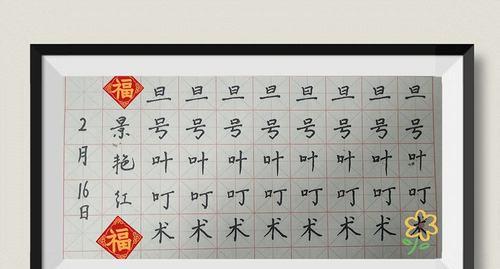 2月16日
福
景艳红
福
旦旦旦旦旦旦旦旦
号号号号号号号号
叶叶叶叶叶叶叶叶
叮叮叮叮叮叮叮叮
术术术术术术术术